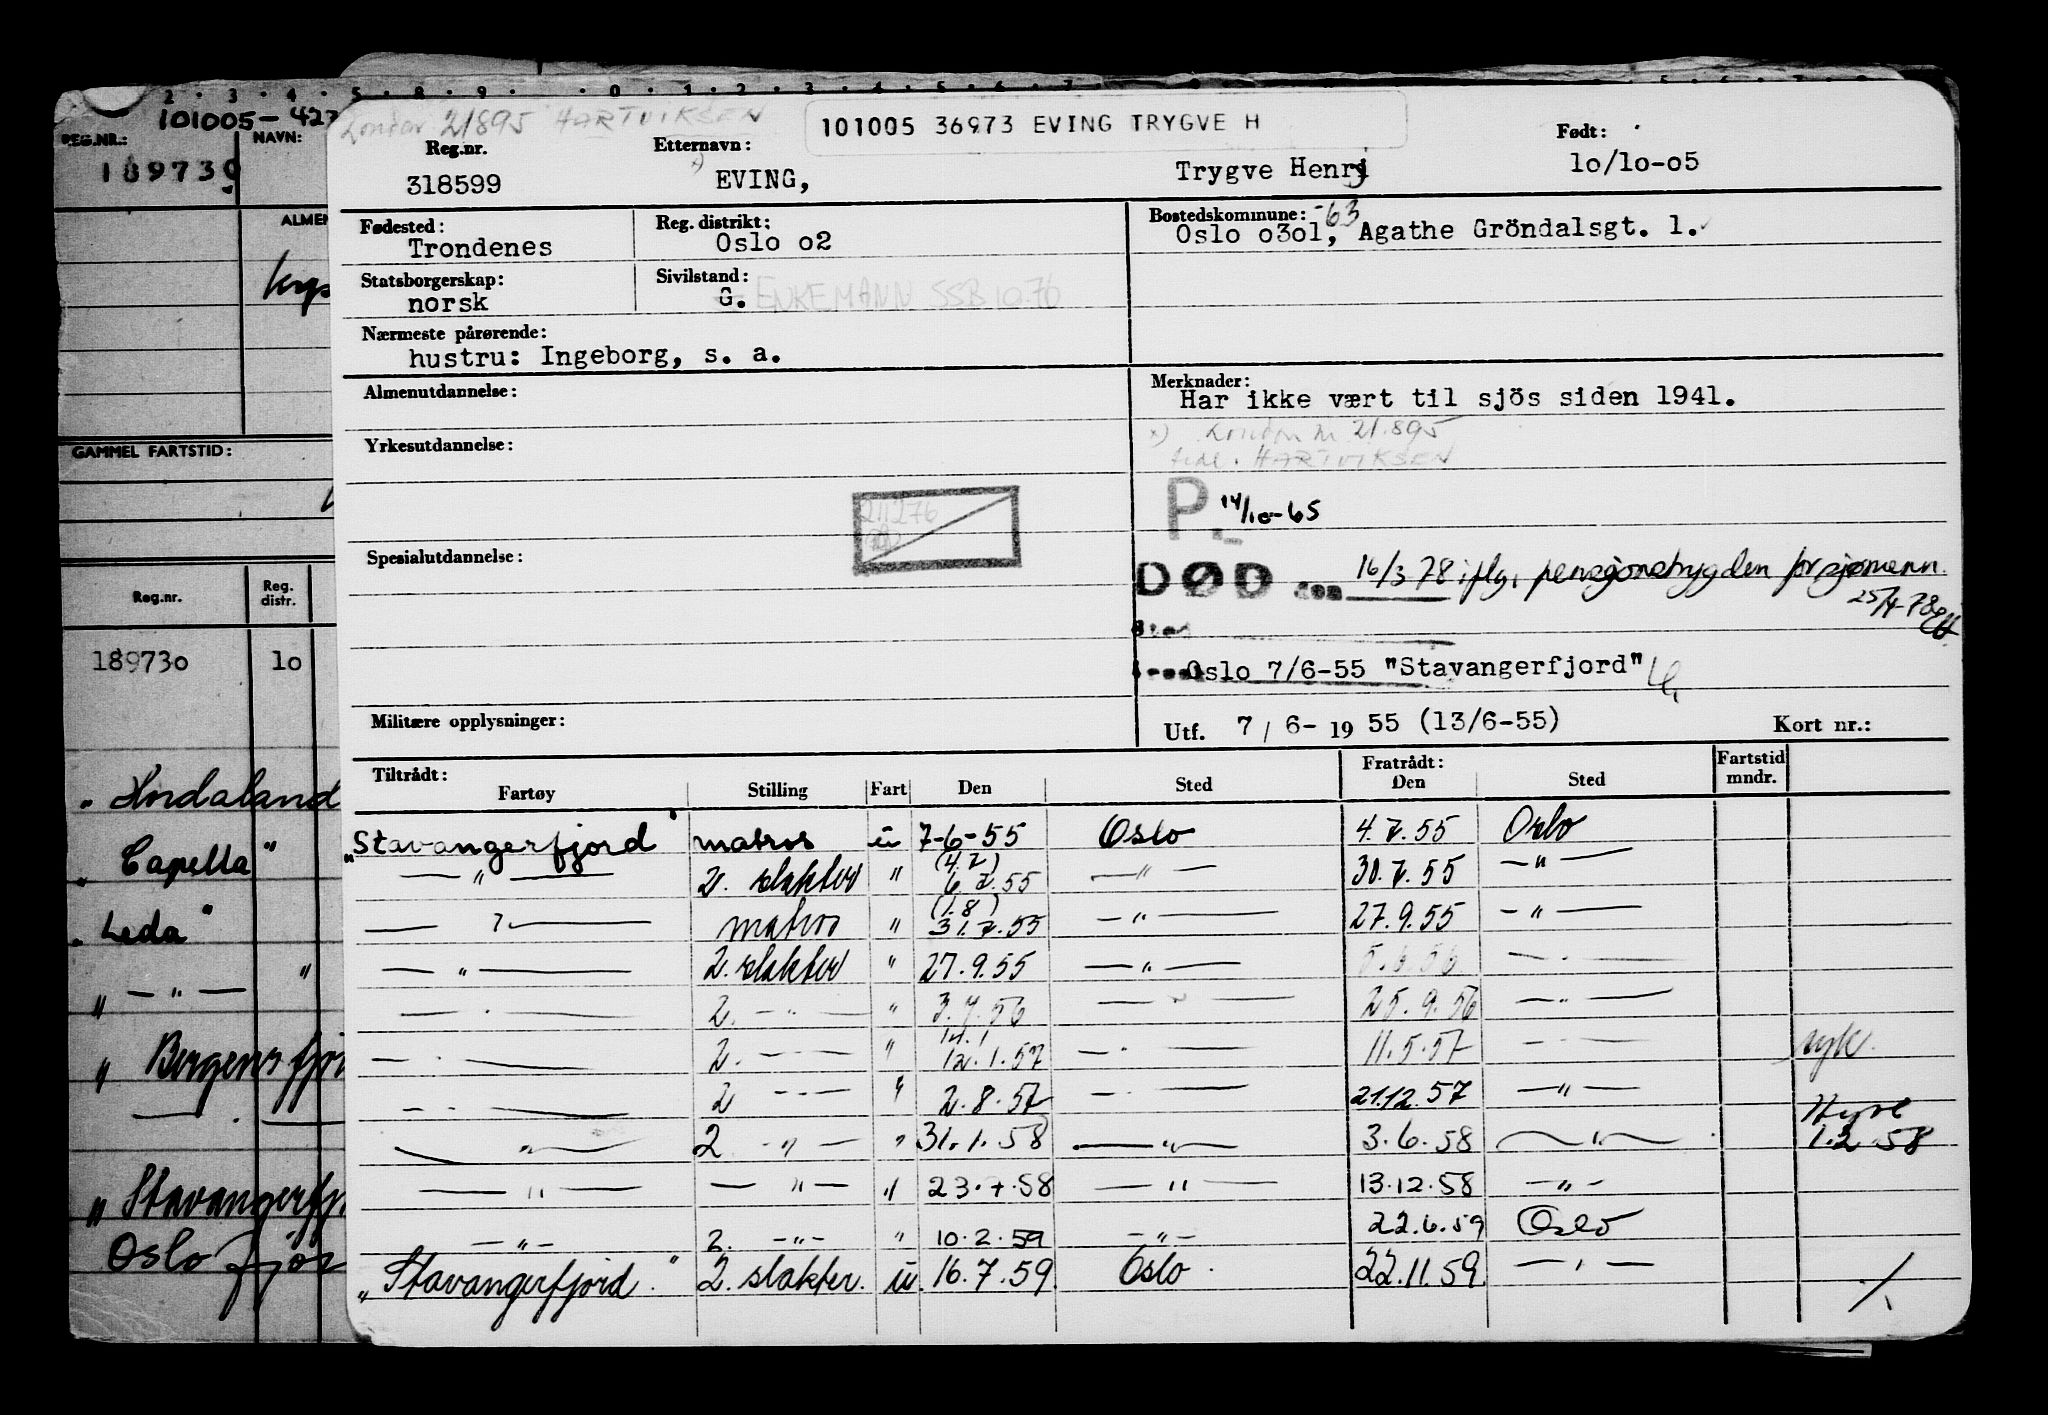 101005-42
REG.NR.: NAVN:
189730
ALMEN
GAMMEL FARTSTID:
Reg.nr. Reg. distr.
189730 1o
"Hordaland
"Capella"
"Leda"
" — " — "
" Bergensfjo
"Stavangerfj
Oslofjor
London 21895 HARTVIKSEN
101005 36973 EVING TRYGVE H
Reg.nr. Etternavn: Født:
318599 EVING, Trygve Henry 1o/1o-o5
Fødested: Reg. distrikt: Bostedskommune: -63
Trondenes Oslo o2 Oslo o3o1, Agathe Gröndalsgt. 1.
Statsborgerskap: Sivilstand:
norsk G. ENKEMANN SSB 10.76
Nærmeste pårørende:
hustru: Ingeborg, s. a.
Almenutdannelse: Merknader:
Har ikke vært til sjös siden 1941.
x) London nr 21.895
Yrkesutdannelse: tidl. HARTVIKSEN
P. 14/10-65
211276
Spesialutdannelse:
DØD den 16/3 78 iflg. pensjonstrygden for sjømenn.
25/4-78
Sted
Oslo 7/6-55 "Stavangerfjord"
Militære opplysninger: Utf. 7 / 6- 19 55 (13/6-55) Kort nr.:
Tiltrådt: Fratrådt: Fartstid mndr.
Fartøy Stilling Fart Den Sted Den Sted
"Stavangerfjord" matros u 7-6-55 Oslo 4.7.55 Oslo
— " — 2. slakter " (4.7) 6.7.55 — " — 30.7.55 — " —
— " — matros " (1.8) 31.7.55 — " — 27.9.55 — " —
— " — 2. slakter " 27.9.55 — " — 5.6.56 — " —
— " — 2. — " — " 3.7.56 — " — 25.9.56 — " —
— " — 2. — " — " 14.1 12.1.57 — " — 11.5.57 — " — syk.
— " — 2 — " — " 2.8.57 — " — 21.12.57 — " —
— " — 2 — " — " 31.1.58 — " — 3.6.58 — " — Hyre 1.2.58
— " — — " — " 23.7.58 — " — 13.12.58 — " —
— " — 2. — " — " 10.2.59 — " — 22.6.59 Oslo
"Stavangerfjord." 2. slakter. u. 16.7.59. Oslo. 22.11.59 — " —